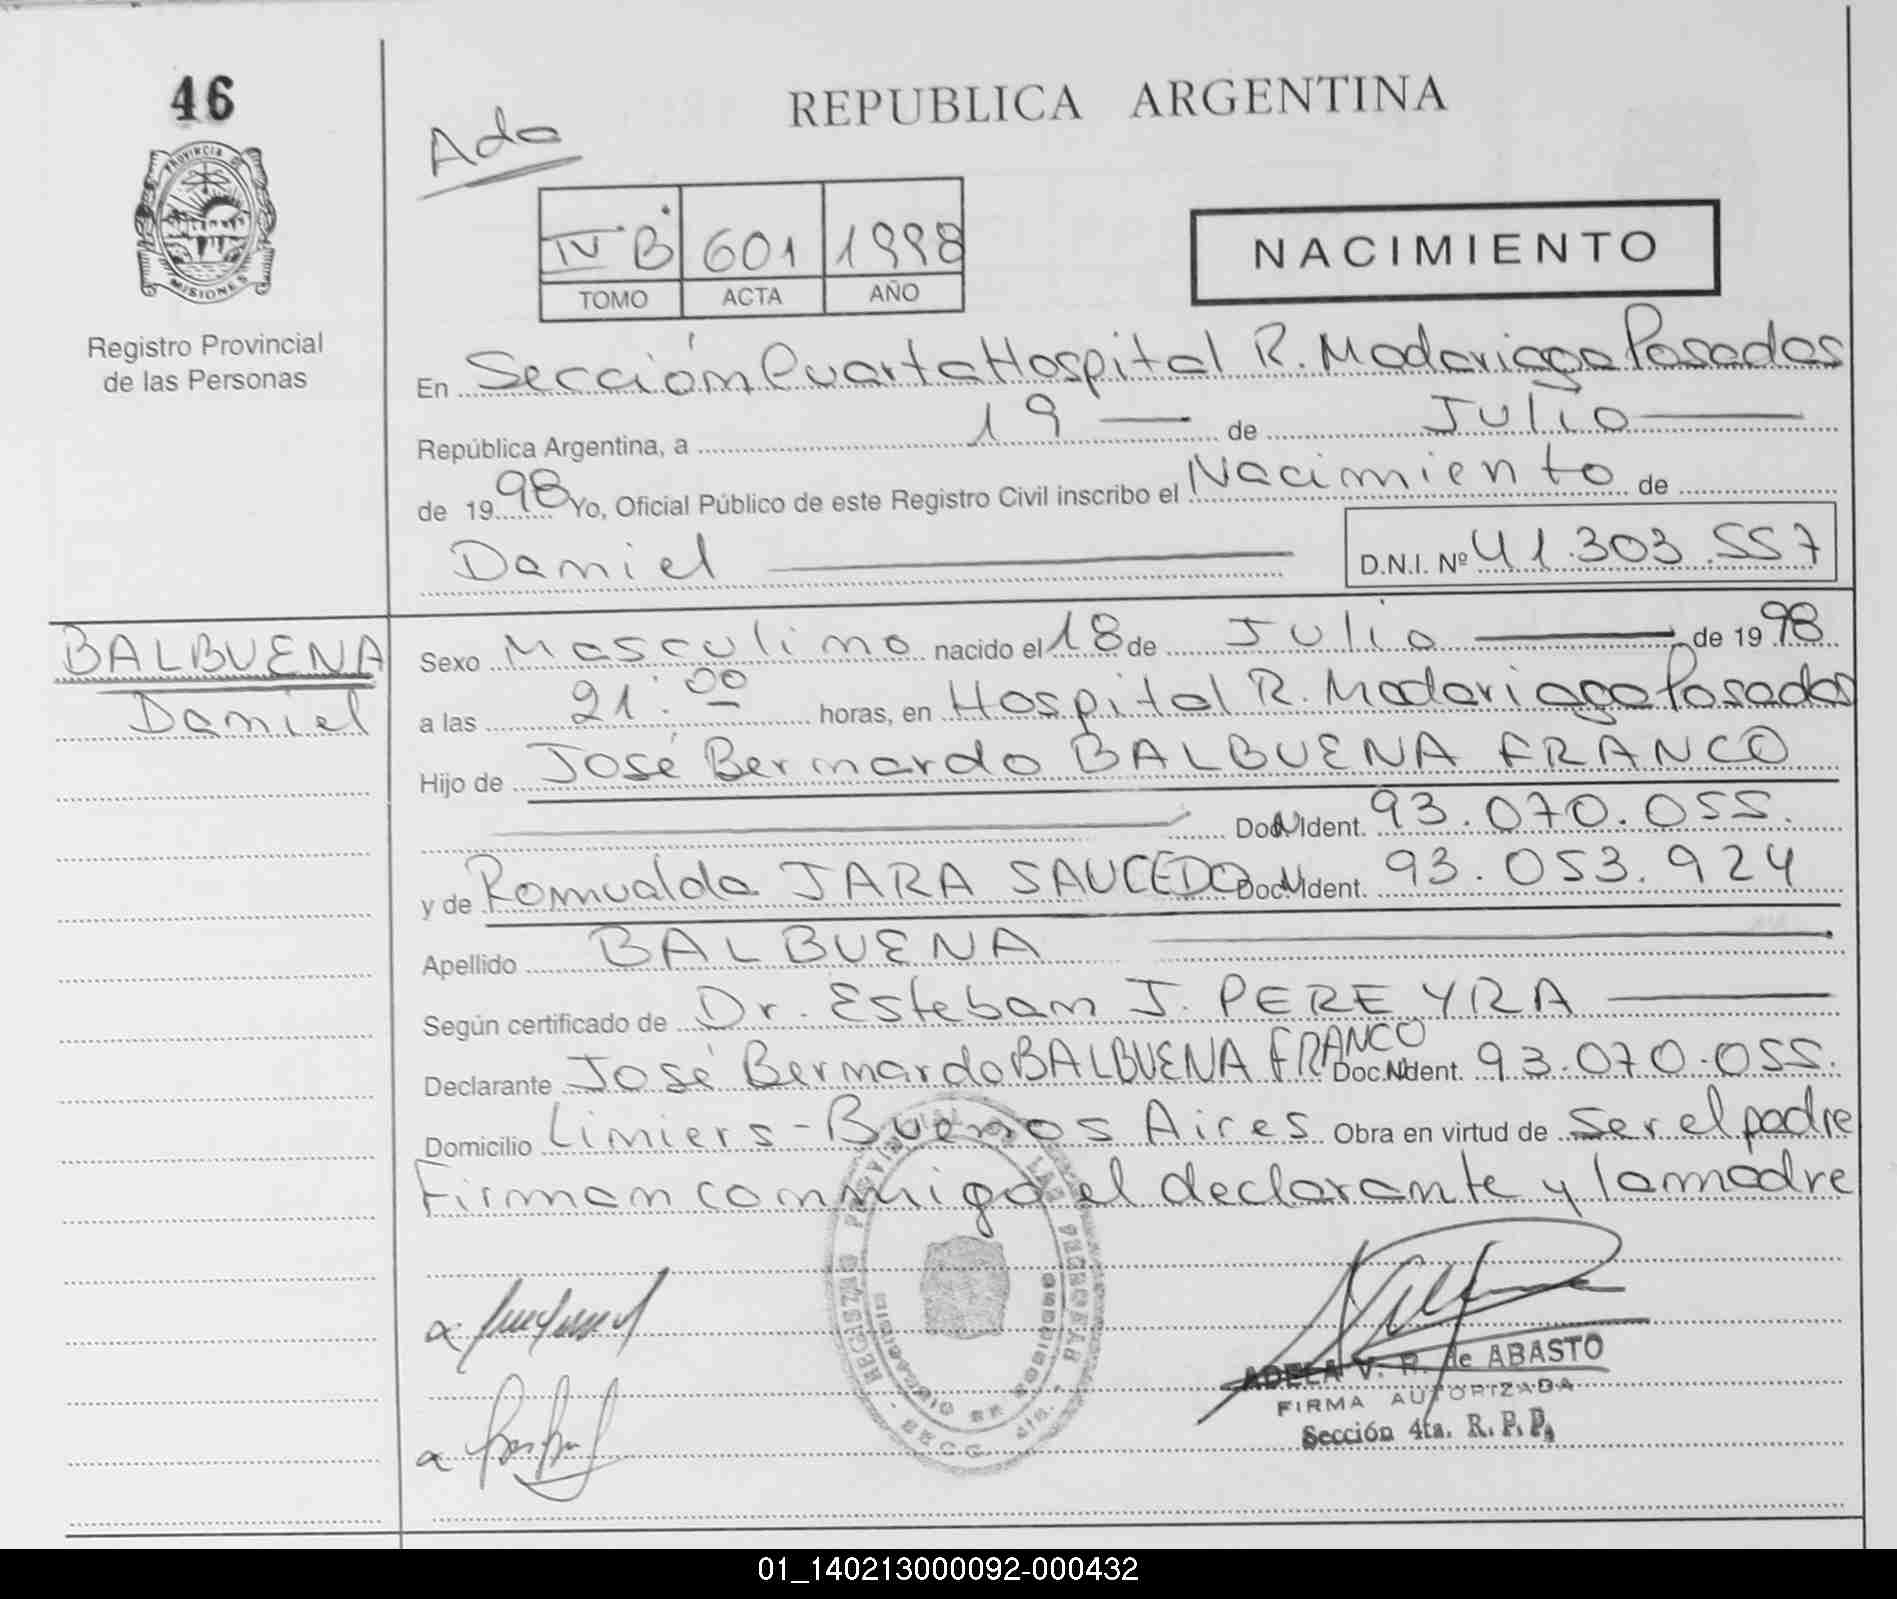 46
PROVINCIA DE
MISIONES
Registro Provincial
de las Personas
Ada
REPUBLICA ARGENTINA
IV B 601 1998
TOMO ACTA AÑO
NACIMIENTO
En Sección Cuarta Hospital R. Madariaga Posadas
República Argentina, a 19 de Julio
de 1998 Yo, Oficial Público de este Registro Civil inscribo el Nacimiento de
Daniel D.N.I. Nº 41.303.557
BALBUENA
Daniel
Sexo Masculino nacido el 18 de Julio de 1998
a las 21:00 horas, en Hospital R. Madariaga Posadas
Hijo de José Bernardo BALBUENA FRANCO
Doc. Ident. 93.070.055.
y de Romualda JARA SAUCEDO Doc. Ident. 93.053.924
Apellido BALBUENA
Según certificado de Dr. Esteban J. PEREYRA
Declarante José Bernardo BALBUENA FRANCO Doc. Ident. 93.070.055.
Domicilio Liniers - Buenos Aires Obra en virtud de ser el padre
Firman conmigo el declarante y la madre
ADELA V. R. de ABASTO
FIRMA AUTORIZADA
Sección 4ta. R. P. P.
01_140213000092-000432